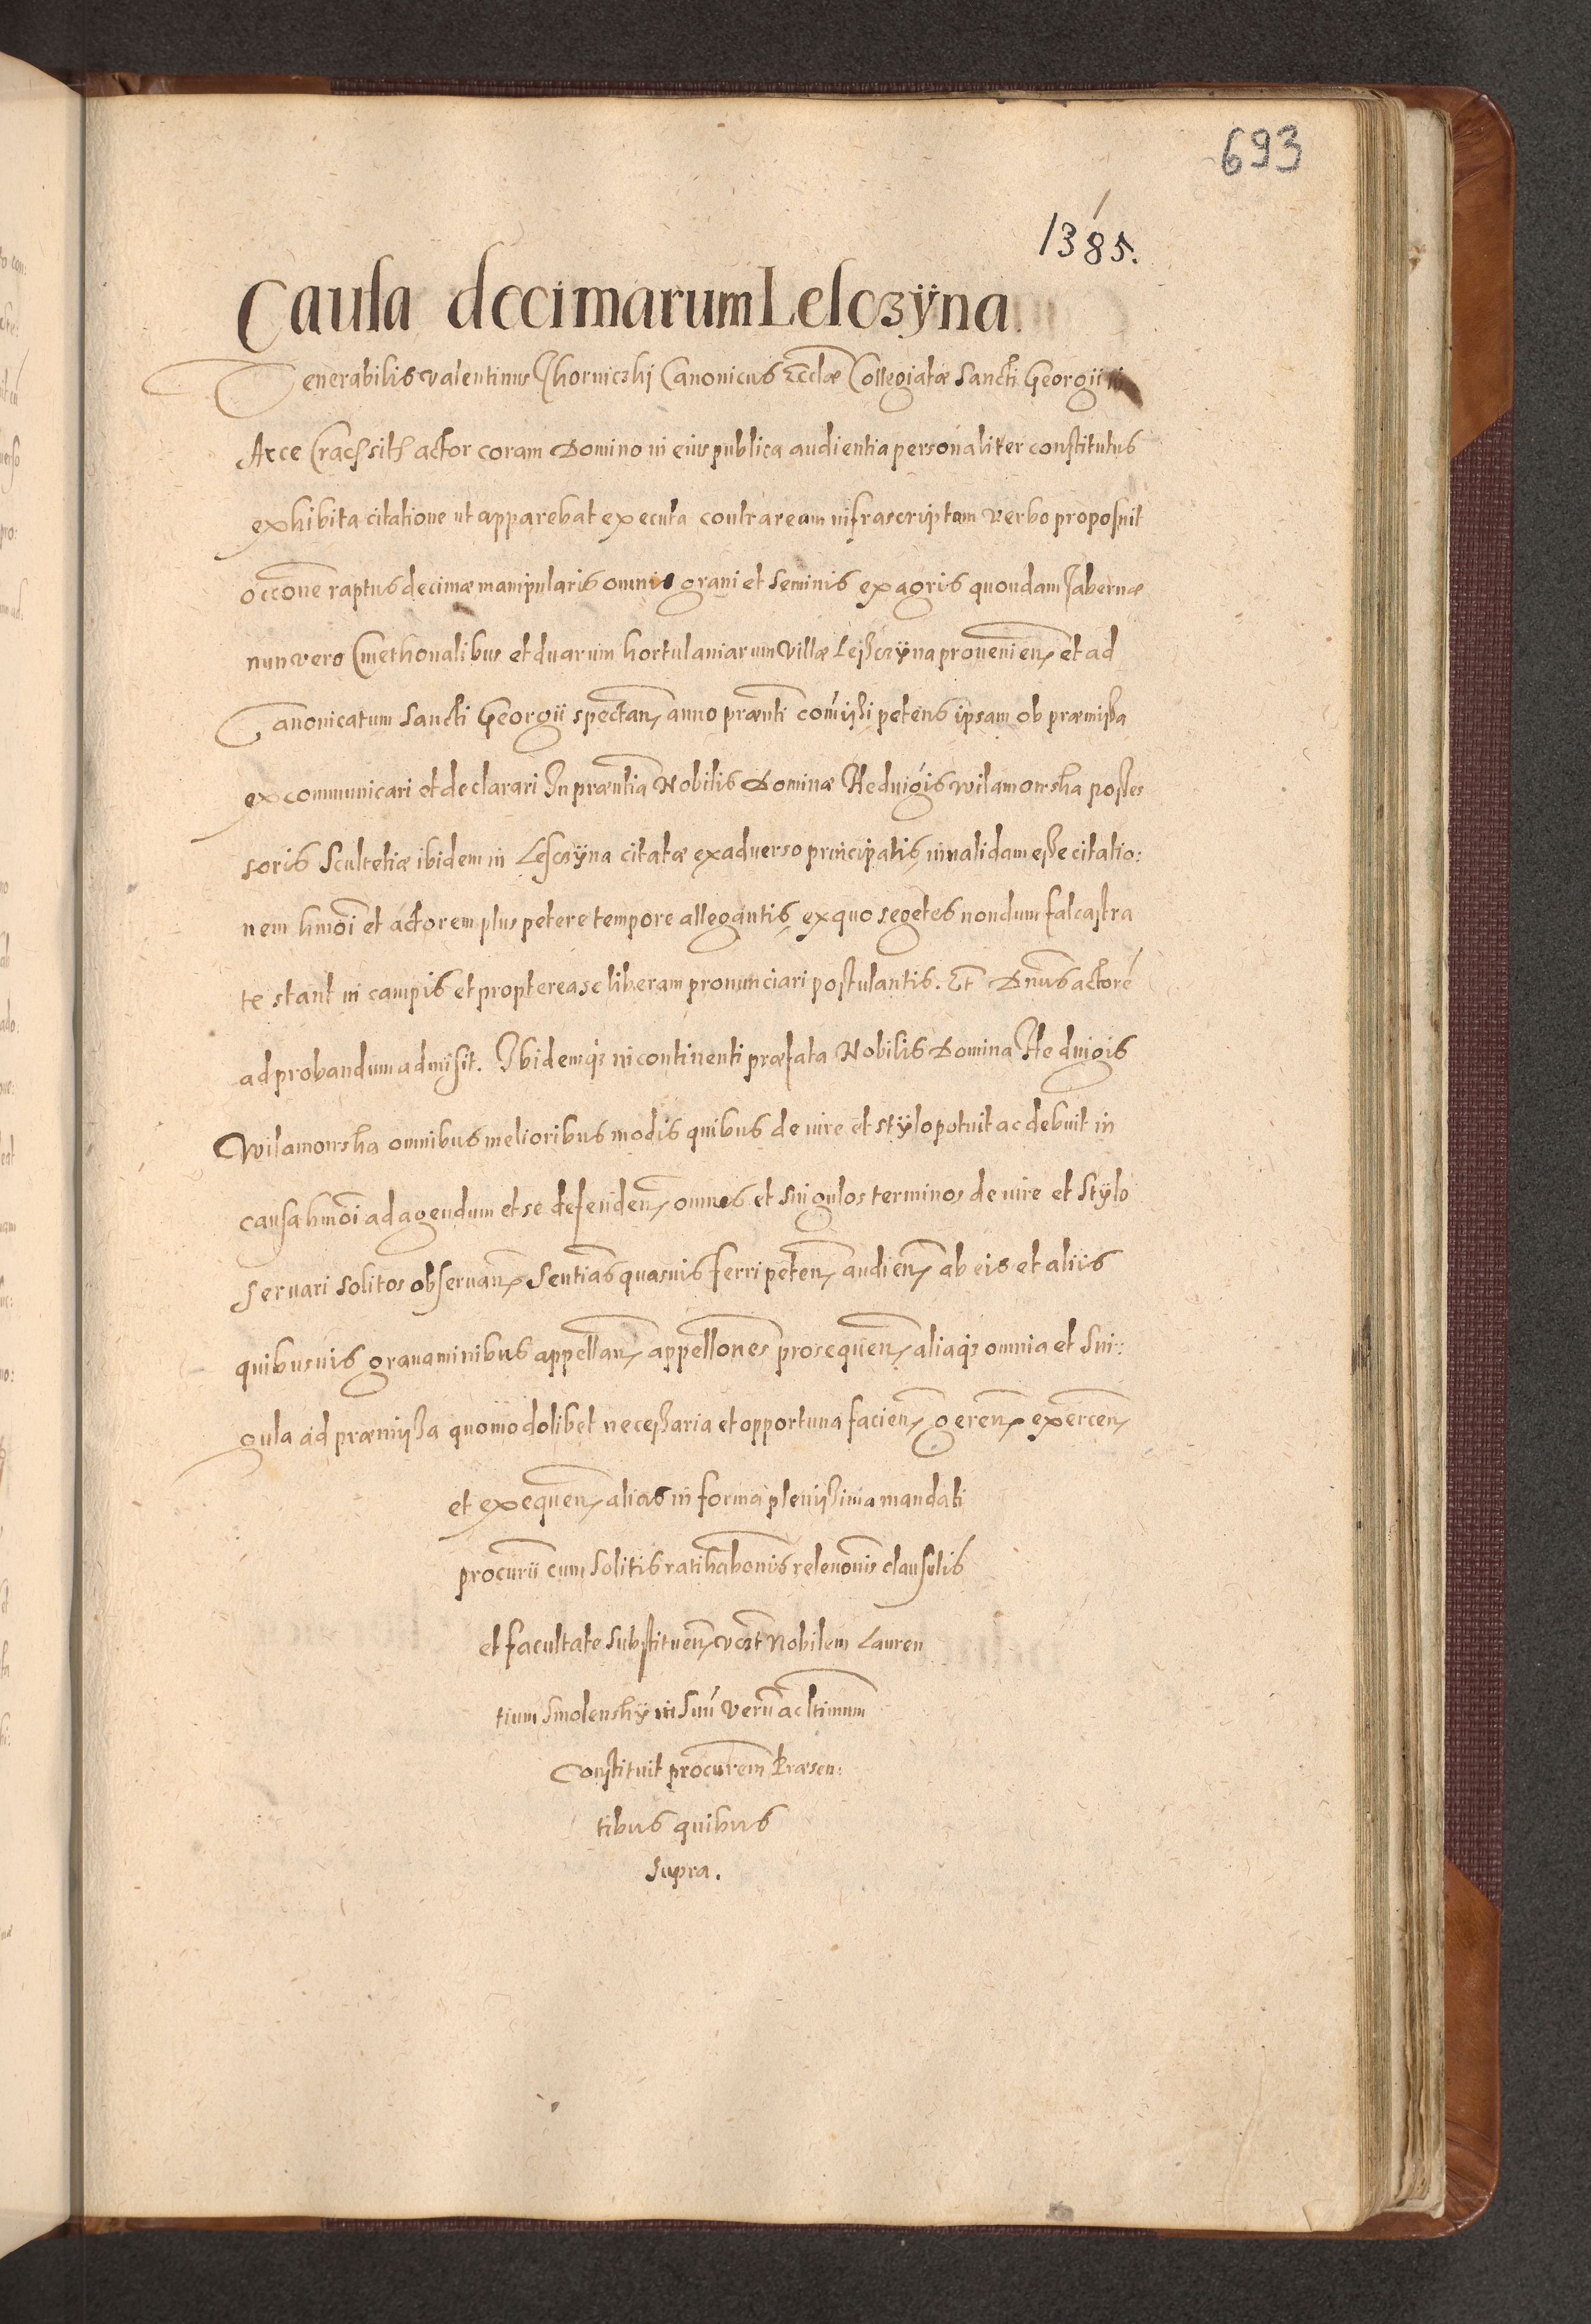 693
1385.
Causa decimarum Lesczÿna
Venerabilis Valentinus Chorniczkj Canonicus Ecclae Collegiatae Sancti Georgii in
Arce Crac: sith actor coram Domino in eius publica audientia personaliter constitutus
exhibita citatione ut apparebat executa contra ream infrascriptam verbo proposuit
occone raptus decimae manipularis omnis grani et seminis ex agris quondam Tabernae
nunc vero Cmethonalibus et duarum hortulaniarum Villae Leszczÿna provenien et ad
Canonicatum Sancti Georgii spectan anno praenti comissi petens ipsam ob praemissa
excommunicari et declarari In praentia Nobilis Dominae Heduigis Wilamowska posses
soris Scultetiae ibidem in Lesczÿna citatae ex adverso principalis, invalidam esse citatio:
nem hmoi et actorem plus petere tempore allegantis, ex quo segetes nondum falcastra
te stant in campis et propterea se liberam pronunciari postulantis. Et Dnus actore
ad probandum admisit. Ibidemq in continenti praefata Nobilis Domina Heduigis
Wilamowska omnibus melioribus modis quibus de iure et stÿlo potuit ac debuit in
causa hmoi ad agendum et se defenden omnes et singulos terminos de iure et Stÿlo
servari solitos observan Sentias quasuis ferri peten audien ab eis et aliis
quibusuis gravaminibus appellan appellones prosequen aliaq omnia et sin:
gula ad praemissa quomodolibet necessaria et opportuna facien geren exercen
et exequen alias in forma plenissima mandati
procurii cum solitis ratihabonis relevonis clausulis
et facultate substituen vort Nobilem Lauren
tium Smolenskÿ in suu veru ac ltimum
Constituit procurem Praesen:
tibus quibus
supra.